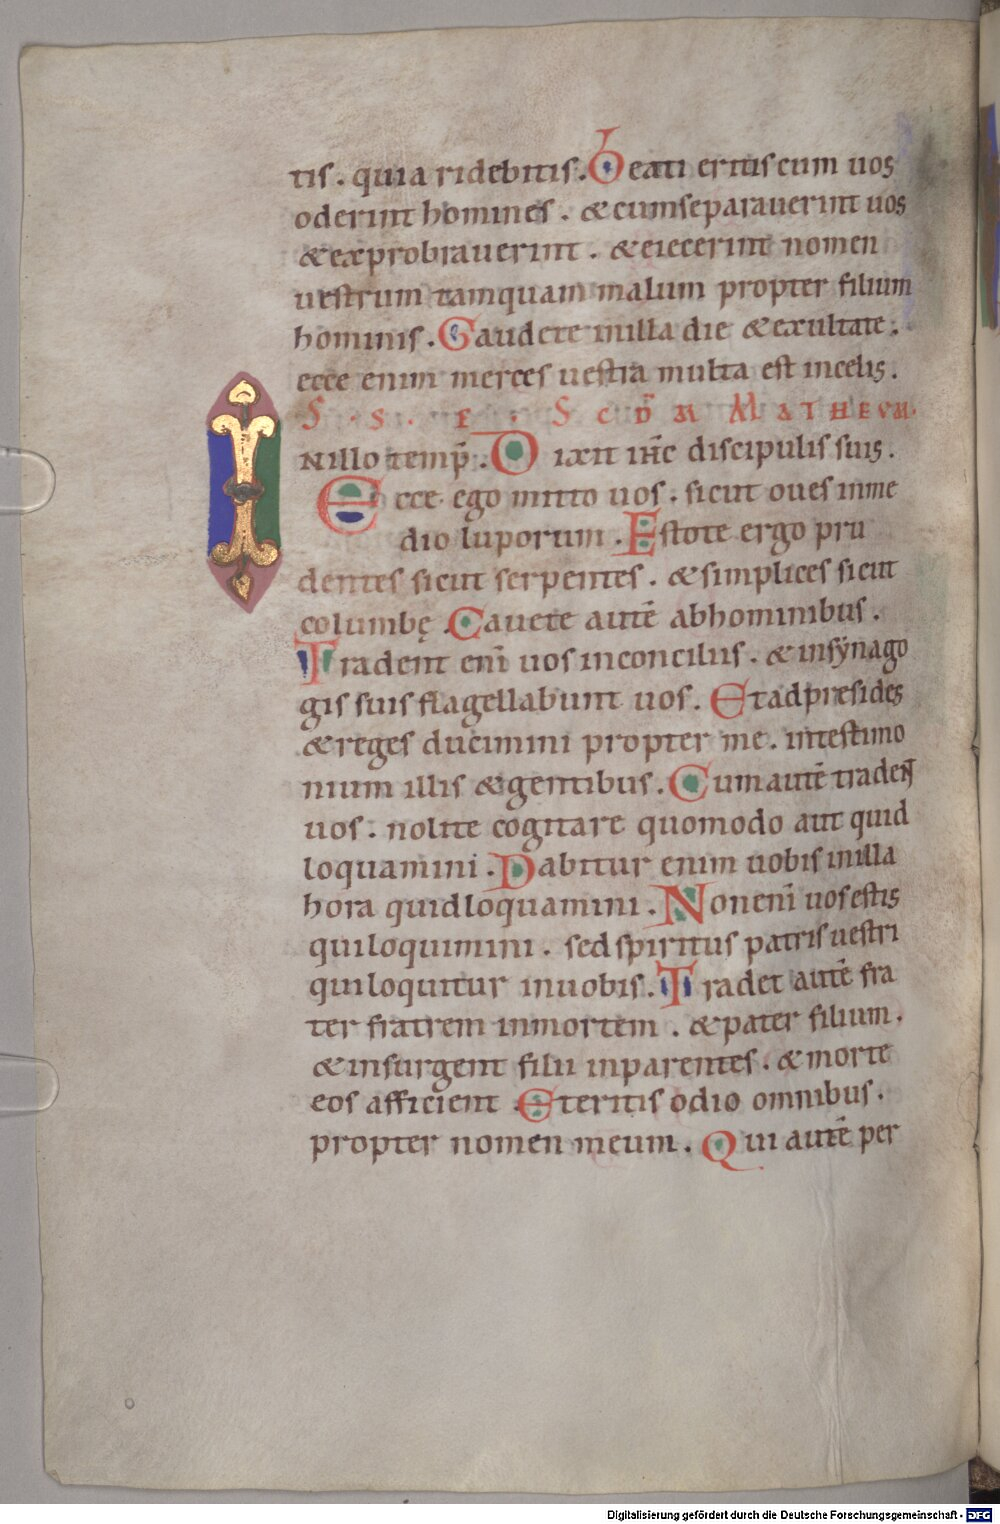 tis. quia ridebitis. Beati eritis cum uos
oderint homines. & cum separauerint uos
& exprobrauerint. & eiecerint nomen
uestrum tamquam malum propter filium
hominis. Gaudete in illa die & exultate.
ecce enim merces uestra multa est in celis.
S. S. E. SCD̄M MATHEUM.
INillo temp̄. Dixit iħc discipulis suis.
Ecce ego mitto uos. sicut oues in me
dio luporum. Estote ergo pru
dentes sicut serpentes. & simplices sicut
columbę. Cauete autē ab hominibus.
Tradent enī uos in conciliis. & in sẏnago
gis suis flagellabunt uos. Et ad præsides
& reges ducimini propter me. in testimo
nium illis & gentibus. Cum autē tradent
uos. nolite cogitare quomodo aut quid
loquamini. Dabitur enim uobis in illa
hora quid loquamini. Non enī uos estis
qui loquimini. sed spiritus patris uestri
qui loquitur in uobis. Tradet autē fra
ter fratrem in mortem. & pater filium.
& insurgent filii in parentes. & morte
eos afficient. Et eritis odio omnibus.
propter nomen meum. Qui autē per
Digitalisierung gefördert durch die Deutsche Forschungsgemeinschaft - DFG